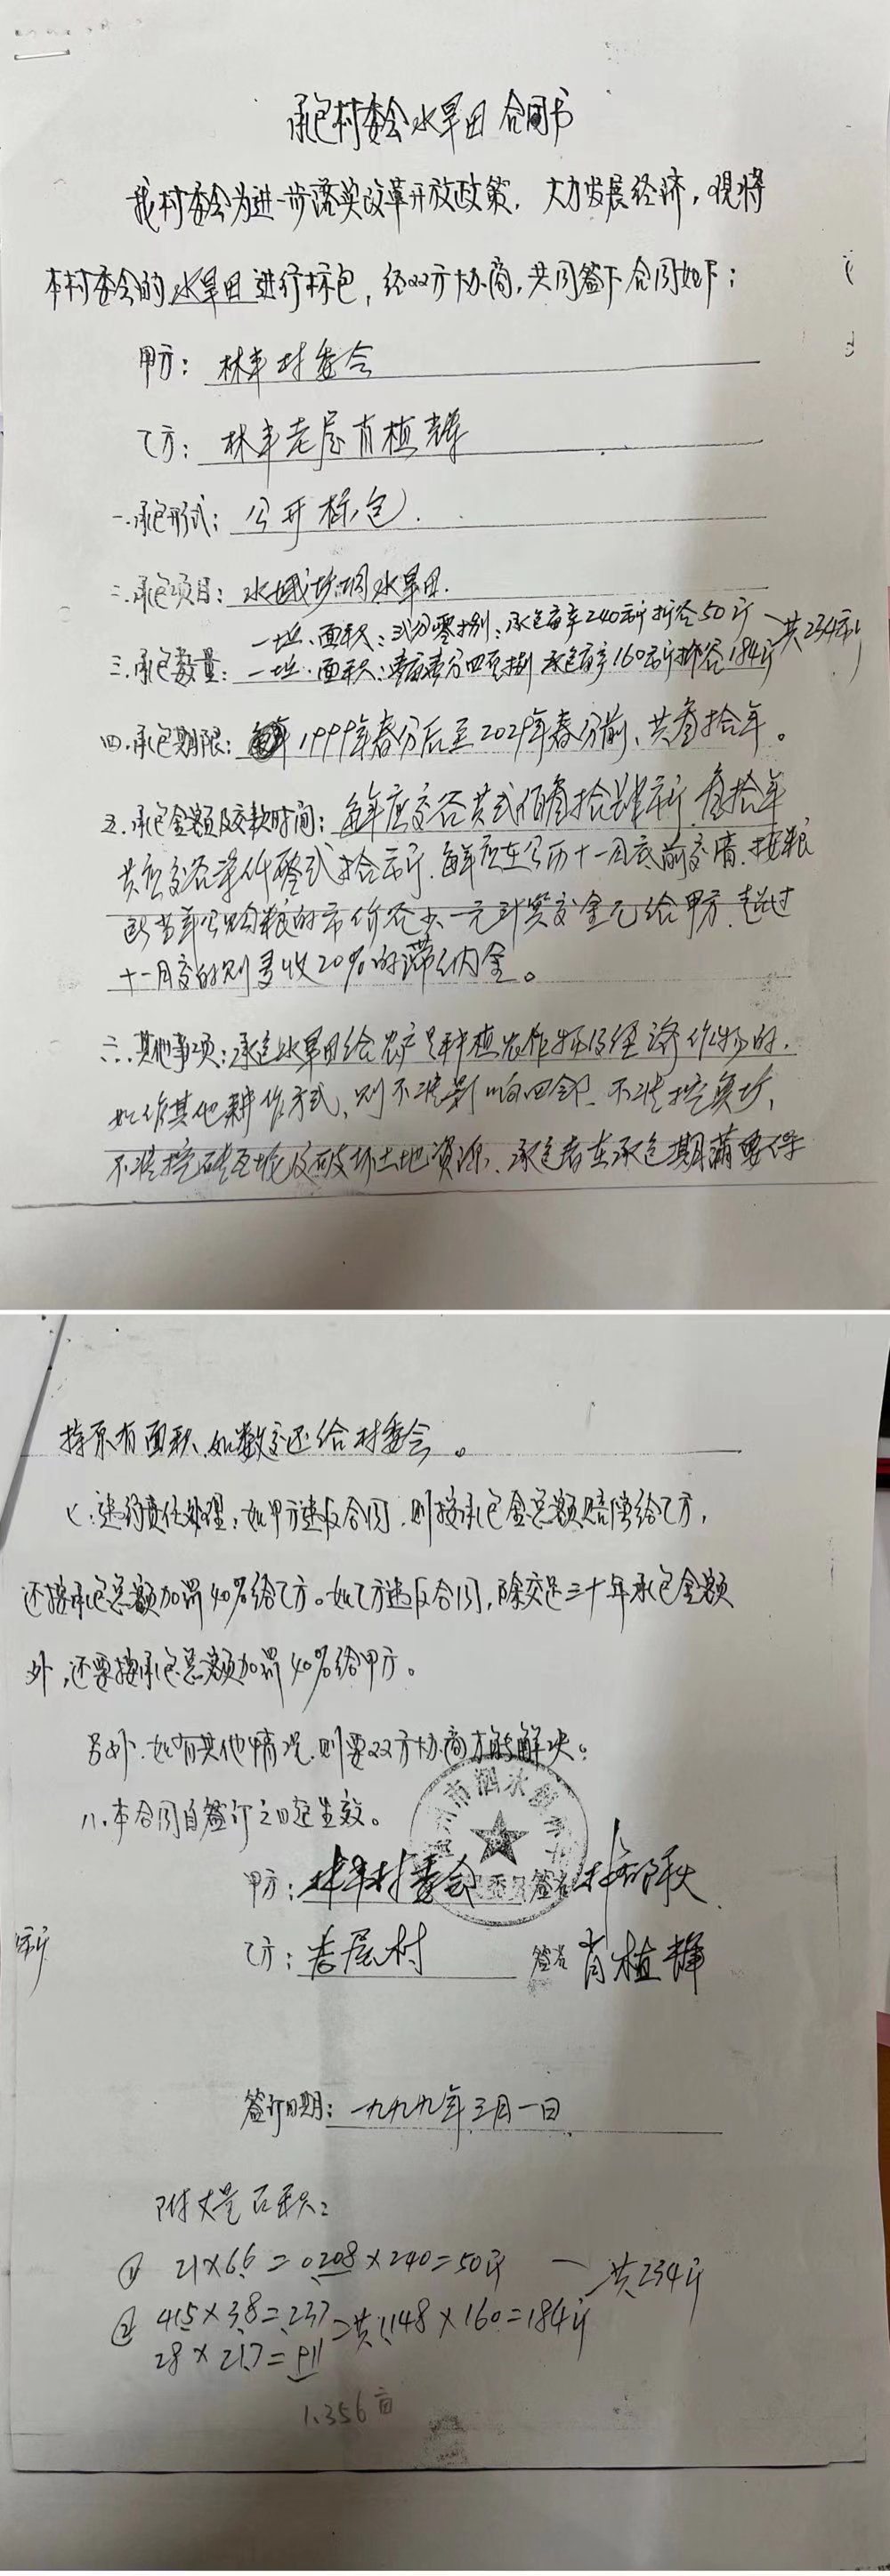 承包村委会水旱田合同书
我村委会为进一步落实改革开放政策，大力发展经济，现将
本村委会的水旱田进行标包，经双方协商，共同签下合同如下：
甲方：林丰村委会
乙方：林丰老屋肖植辉
一.承包形式：公开标包.
二.承包项目：水旱田.
一块.面积：弍分零捌；承包亩产240市斤折谷50斤
共234市斤
三.承包数量：一块.面积：壹亩壹分四厘捌 承包亩产160市斤折谷184斤
四.承包期限：1999年春分后至2029年春分前、共叁拾年。
五.承包金额及交款时间：每年应交谷共弍佰叁拾肆市斤.叁拾年
共应交谷柒仟零弍拾市斤.每年应在公历十一月底前交清.按粮
所当年公购粮的市价不少一元计算交金元给甲方.超过
十一月交的则多收20%的滞纳金。
六.其他事项：承包水旱田给农户是种植农作物及经济作物的.
如作其他耕作方式、则不准影响四邻、不准挖鱼圹、
不准挖砖瓦坭及破坏土地资源、承包者在承包期满要保
持原有面积、如数交还给村委会。
七.违约责任处理：如甲方违反合同.则按承包金总额赔偿给乙方，
还按承包总额加罚40%给乙方。如乙方违反合同，除交足三十年承包金额
外，还要按承包总额加罚40%给甲方。
另外.如有其他情况.则要双方协商才能解决。
八.本合同自签订之日起生效。
市泗水
甲方：林丰村委会 签名
乙方：老屋村 签名 肖植辉
市斤
签订日期：一九九九年三月一日
附丈量面积：
① 21×6.6=0.208×240=50斤 共234斤
② 41.5×3.8=.237 共1.148×160=184斤
28×21.7=.911
1.356亩